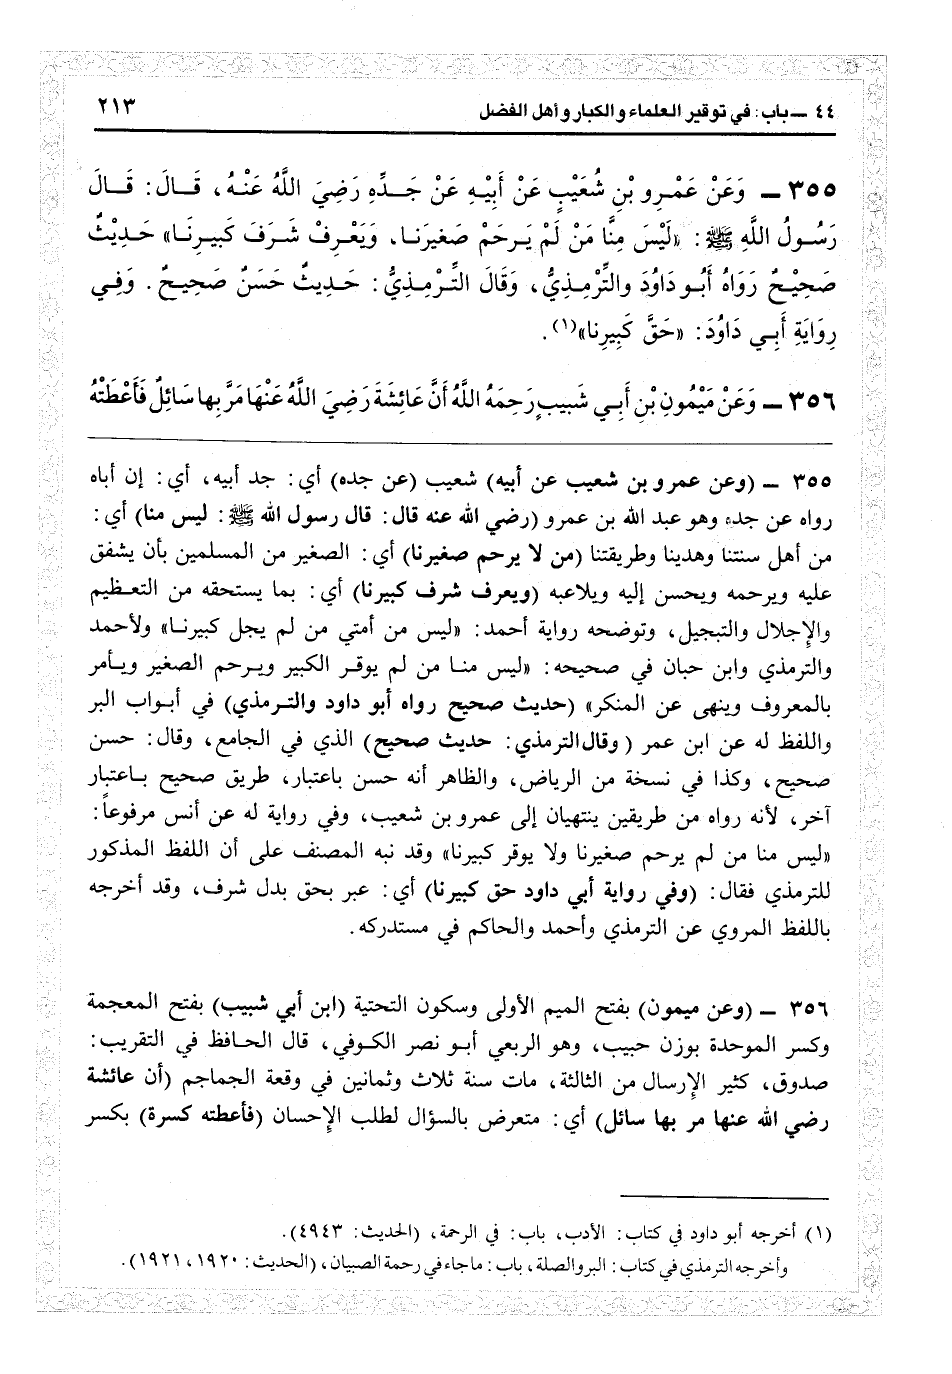 ٤٤ ــ باب: في توقير العلماء والكبار وأهل الفضل ٢١٣
٣٥٥ ــ وَعَنْ عَمْرِو بْنِ شُعَيْبٍ عَنْ أَبِيْهِ عَنْ جَدِّهِ رَضِيَ اللَّهُ عَنْهُ، قَالَ: قَالَ
رَسُولُ اللَّهِ ﷺ: «لَيْسَ مِنَّا مَنْ لَمْ يَرحَمْ صَغيرَنا، وَيَعْرِفْ شَرَفَ كَبيرِنَا» حَدِيْثٌ
صَحِيْحٌ رَوَاهُ أَبُو دَاوُدَ والتِّرْمِذِيُّ، وَقَالَ التِّرْمِذِيُّ: حَدِيثٌ حَسَنٌ صَحِيحٌ. وَفِي
رِوَايَةِ أَبِي دَاوُدَ: «حَقَّ كَبِيرِنا»(١).
٣٥٦ ــ وَعَنْ مَيْمُونِ بْنِ أَبِي شَبيبٍ رَحِمَهُ اللَّهُ أَنَّ عَائِشَةَ رَضِيَ اللَّهُ عَنْهَا مَرَّ بِها سَائِلٌ فَأَعْطَتْهُ
٣٥٥ ــ (وعن عمرو بن شعيب عن أبيه) شعيب (عن جده) أي: جد أبيه، أي: إن أباه
رواه عن جده وهو عبد الله بن عمرو (رضي الله عنه قال: قال رسول الله ﷺ: ليس منا) أي:
من أهل سنتنا وهدينا وطريقتنا (من لا يرحم صغيرنا) أي: الصغير من المسلمين بأن يشفق
عليه ويرحمه ويحسن إليه ويلاعبه (ويعرف شرف كبيرنا) أي: بما يستحقه من التعظيم
والإجلال والتبجيل، وتوضحه رواية أحمد: «ليس من أمتي من لم يجل كبيرنا» ولأحمد
والترمذي وابن حبان في صحيحه: «ليس منا من لم يوقر الكبير ويرحم الصغير ويأمر
بالمعروف وينهى عن المنكر» (حديث صحيح رواه أبو داود والترمذي) في أبواب البر
واللفظ له عن ابن عمر (وقال الترمذي: حديث صحيح) الذي في الجامع، وقال: حسن
صحيح، وكذا في نسخة من الرياض، والظاهر أنه حسن باعتبار، طريق صحيح باعتبار
آخر، لأنه رواه من طريقين ينتهيان إلى عمرو بن شعيب، وفي رواية له عن أنس مرفوعاً:
«ليس منا من لم يرحم صغيرنا ولا يوقر كبيرنا» وقد نبه المصنف على أن اللفظ المذكور
للترمذي فقال: (وفي رواية أبي داود حق كبيرنا) أي: عبر بحق بدل شرف، وقد أخرجه
باللفظ المروي عن الترمذي وأحمد والحاكم في مستدركه.
٣٥٦ ــ (وعن ميمون) بفتح الميم الأولى وسكون التحتية (ابن أبي شبيب) بفتح المعجمة
وكسر الموحدة بوزن حبيب، وهو الربعي أبو نصر الكوفي، قال الحافظ في التقريب:
صدوق، كثير الإرسال من الثالثة، مات سنة ثلاث وثمانين في وقعة الجماجم (أن عائشة
رضي الله عنها مر بها سائل) أي: متعرض بالسؤال لطلب الإحسان (فأعطته كسرة) بكسر
(١) أخرجه أبو داود في كتاب: الأدب، باب: في الرحمة، (الحديث: ٤٩٤٣).
وأخرجه الترمذي في كتاب: البر والصلة، باب: ما جاء في رحمة الصبيان، (الحديث: ١٩٢٠، ١٩٢١).